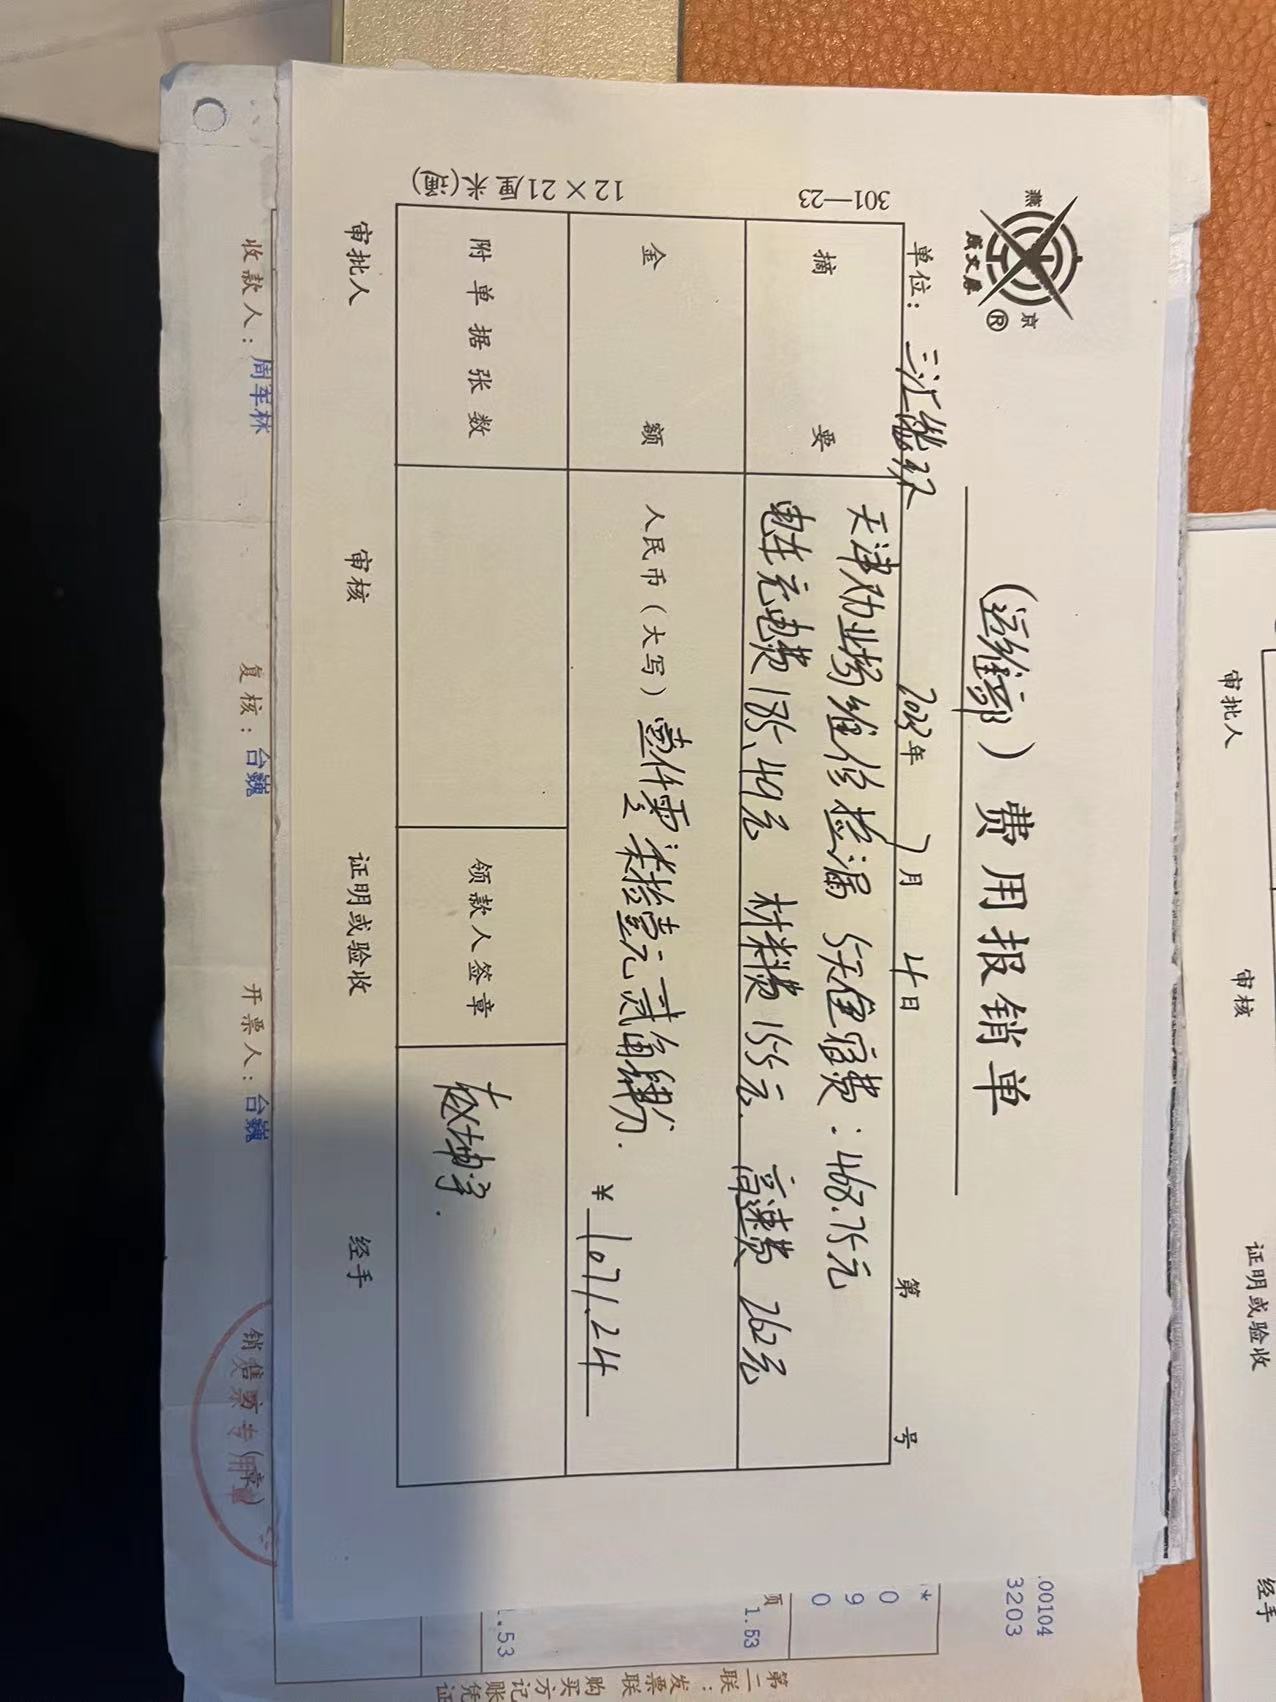 燕 京
成文厚 ®
(运维部)费用报销单
单位: 三汇能环 2023年 7月 4日 第 号
301—23
摘要
天津劝业场维修检漏 5天住宿费:468.75元
电车充电费185.49元 材料费155元 高速费 262元
金额
人民币(大写) 壹仟零柒拾壹元贰角肆分. ¥ 1071.24
附单据张数
领款人签章
赵坤宇.
12×21厘米(通)
审批人 审核 证明或验收 经手
收款人: 周军林 复核: 台巍 开票人: 台巍 销售方:(章)
发票专用章
.00104
3203
*
0
9
0
页
1.53
1.53
第二联:发票联 购买方记账凭证
审批人 审核 证明或验收 经手